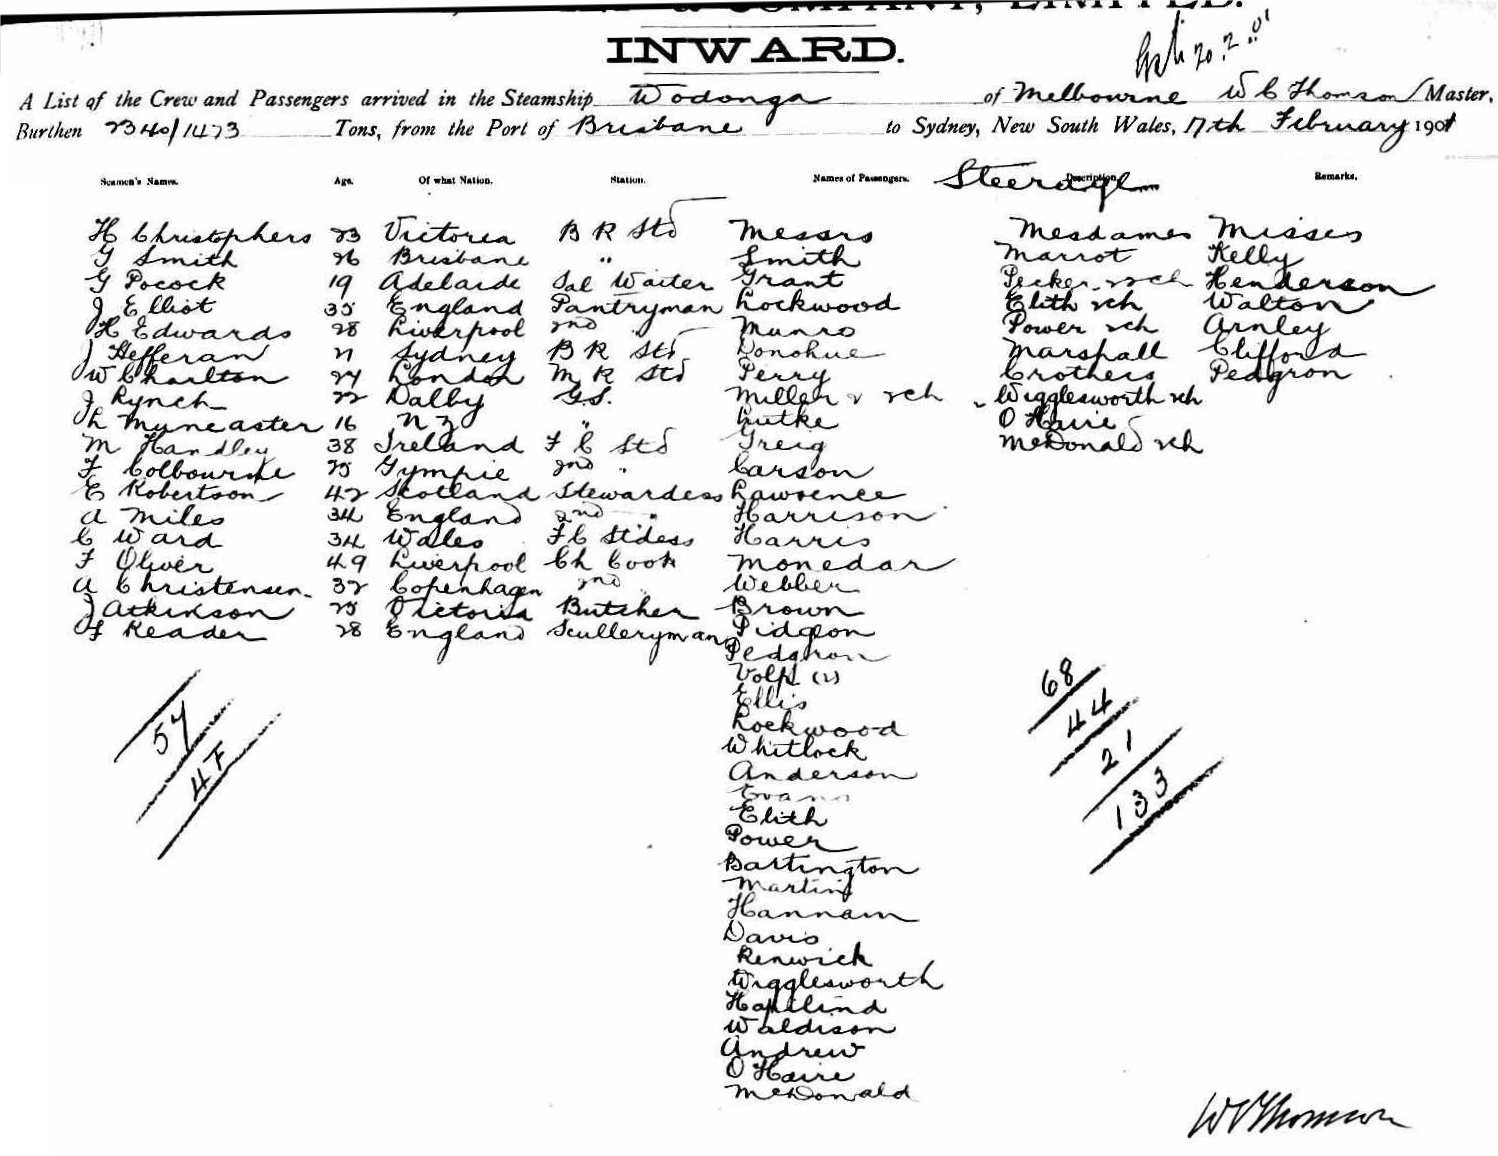 & COMPANY, LIMITED.
INWARD.
20.2.01
A List of the Crew and Passengers arrived in the Steamship Wodonga of Melbourne W C Thomson Master,
Burthen 2340/1473 Tons, from the Port of Brisbane to Sydney, New South Wales, 17th February 1901
Seamen's Names. Age. Of what Nation. Station. Names of Passengers. Steerage Description. Remarks.
H Christophers 23 Victoria B R Std Messrs Mesdames Misses
G Smith 26 Brisbane " Smith Marrot Kelly
G Pocock 19 Adelaide Sal Waiter Grant Pecker 2ch Henderson
J Elliot 35 England Pantryman Lockwood Elith 2ch Walton
H Edwards 28 Liverpool 2nd " Munro Power 2ch Arnley
J Hefferan 21 Sydney B R Std Donohue Marshall Clifford
W Charlton 27 London M R Std Perry Crothers Pedgron
J Rynch 22 Dalby G.S. Miller & 2ch Wigglesworth 2ch
L Muncaster 16 N Z " Lutke O Haire
M Handley 38 Ireland F C Std Greig McDonald 2ch
F Colbourne 25 Gympie 2nd " Carson
E Robertson 42 Scotland Stewardess Lawrence
A Miles 34 England 2nd " Harrison
C Ward 34 Wales F C Stdess Harris
F Oliver 49 Liverpool Ch Cook Monedar
A Christensen 32 Copenhagen 2nd " Webber
J Atkinson 25 Victoria Butcher Brown
F Reader 28 England Sculleryman Pidgeon
Pedgron
Volpl (2)
Ellis
Lockwood
Whitlock
Anderson
Evans
Elith
Power
Bartington
Martin
Hannam
Davis
Renwick
Wigglesworth
Waldison
Andrew
O Haire
McDonald
57
4F
68
44
21
133
W C Thomson